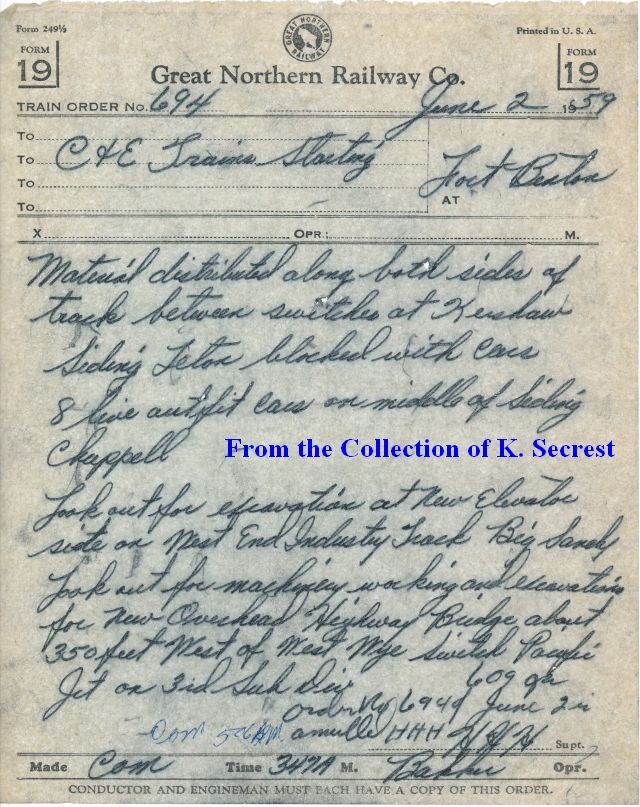 Form 249½ Printed in U. S. A.
GREAT NORTHERN RAILWAY
FORM 19 FORM 19
Great Northern Railway Co.
TRAIN ORDER No. 694 June 2 1959
To
To C&E Trains Starting Fort Benton
To AT
To
X OPR.: M.
Material distributed along both sides of
track between switches at Kershaw
Siding Teton blocked with cars
8 live outfit cars on middle of Siding
Chappell
From the Collection of K. Secrest
Look out for excavation at New Elevator
site on West End Industry Track Big Sandy
Look out for machinery working and excavations
for New Overhead Highway Bridge about
350 feet West of West Wye switch Pacific
Jct on 3rd Sub Div
Order No June 2
Com 526 AM HHH Supt.
Made Com Time 347A M. Opr.
CONDUCTOR AND ENGINEMAN MUST EACH HAVE A COPY OF THIS ORDER.